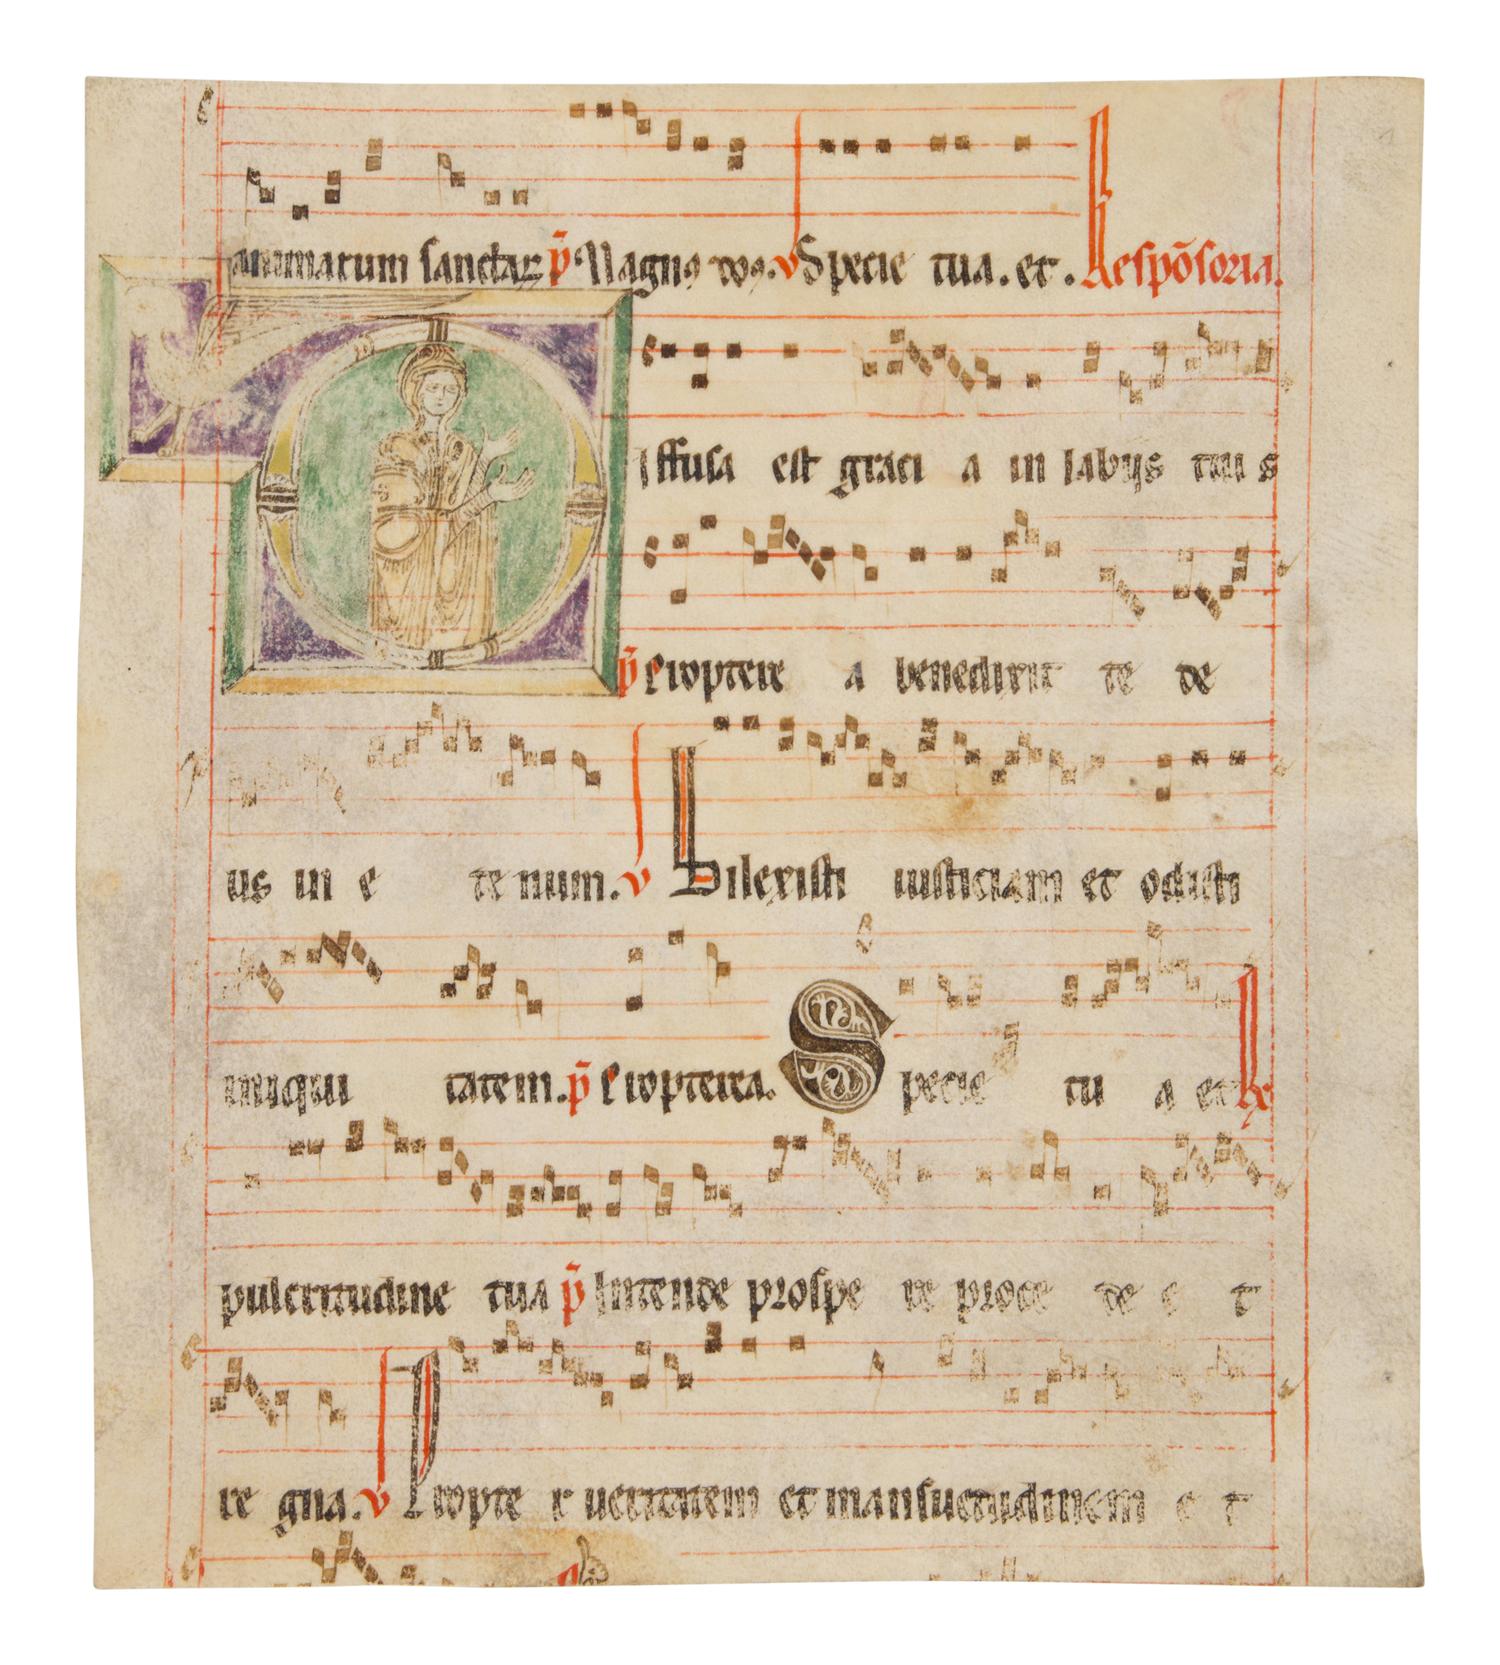 animarum sanctaꝝ p̄ Magnꝰ dꝰ. v Specie tua. et. Respōsoria.
Diffusa est graci a in labijs tuis
p̄ Propterre a benedixit te de
us in e te num. v Dilexisti iusticiam et odisti
iniqui tatem. p̄ Propterea. Specie tu a et R
pulcritudine tua p̄ Intende prospe re proce de e t
re gna. v Propte r ueritatem et mansuetudinem e t